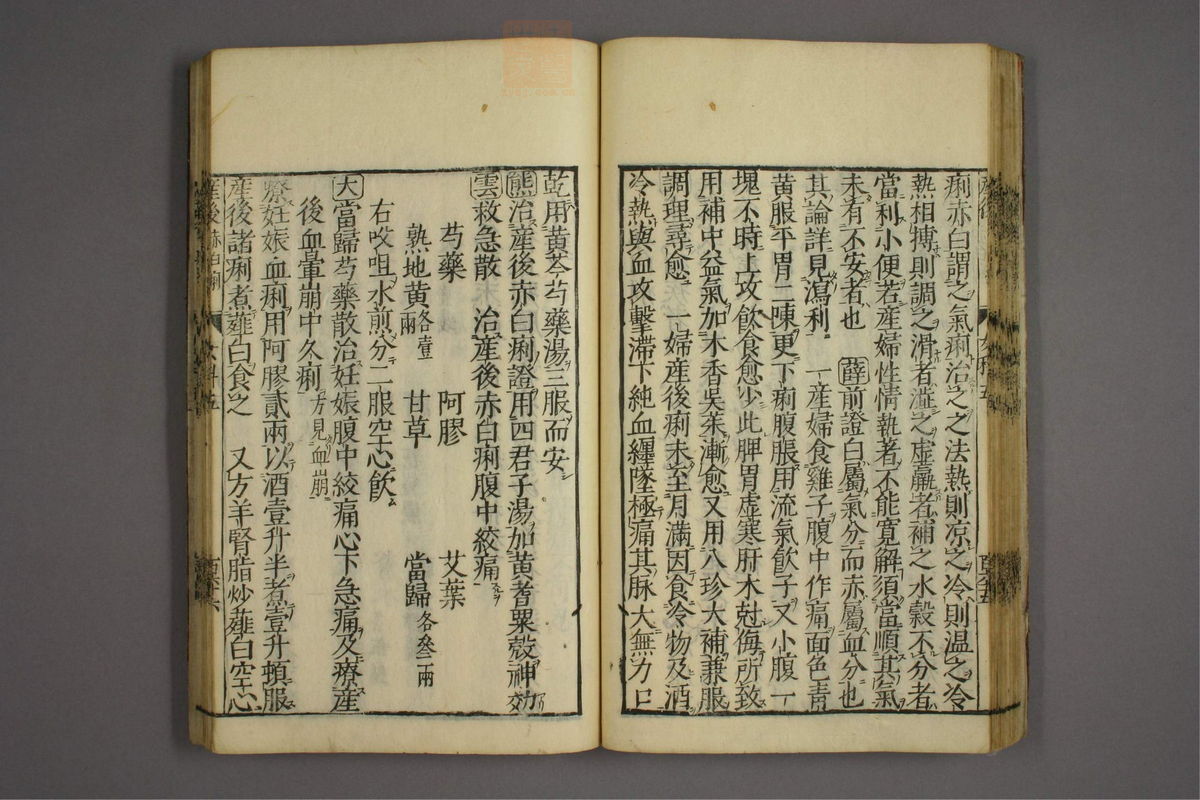 痢赤白謂之氣痢治之之法熱則凉之冷則温之冷
熱相搏則調之滑者澁之虚羸者補之水穀不分者
當利小便若産婦性情執著不能寬解須當順其氣
未有不安者也 薛前證白屬氣分而赤屬血分也
其論詳見瀉利 一産婦食雞子腹中作痛面色青
黄服平胃二陳更下痢腹脹用流氣飲子又小腹一
塊不時上攻飲食愈少此脾胃虚寒肝木尅侮所致
用補中益氣加木香吳茱漸愈又用八珍大補兼服
調理尋愈 一婦産後痢未至月滿因食冷物及酒
冷熱與血攻擊滯下純血纏墜極痛其脉大無力口
乾用黄芩芍藥湯三服而安
熊治産後赤白痢證用四君子湯加黄耆粟殼神効
雲救急散 治産後赤白痢腹中絞痛
芍藥 阿膠 艾葉
熟地黄各壹兩 甘草 當歸各叄兩
右㕮咀水煎分二服空心飲
大當歸芍藥散治妊娠腹中絞痛心下急痛及療産
後血暈崩中久痢方見血崩
療妊娠血痢用阿膠貳兩以酒壹升半煮壹升頓服
産後諸痢煮薤白食之 又方羊腎脂炒薤白空心
産後 赤白痢 女科五